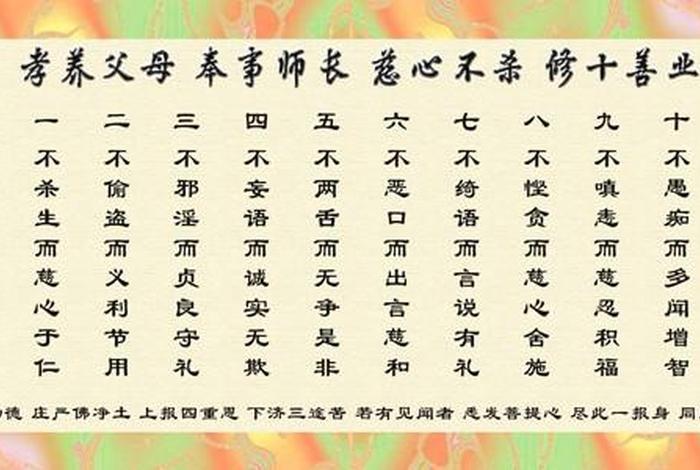 孝养父母 奉事师长 慈心不杀 修十善业
一不杀生而慈心于仁
二不偷盗而义利节用
三不邪淫而贞良守礼
四不妄语而诚实无欺
五不两舌而无争是非
六不恶口而出言慈和
七不绮语而言说有礼
八不悭贪而慈心舍施
九不嗔恚而慈忍积福
十不愚痴而多闻增智
德 庄严佛净土 上报四重恩 下济三途苦 若有见闻者 悉发菩提心 尽此一报身 同